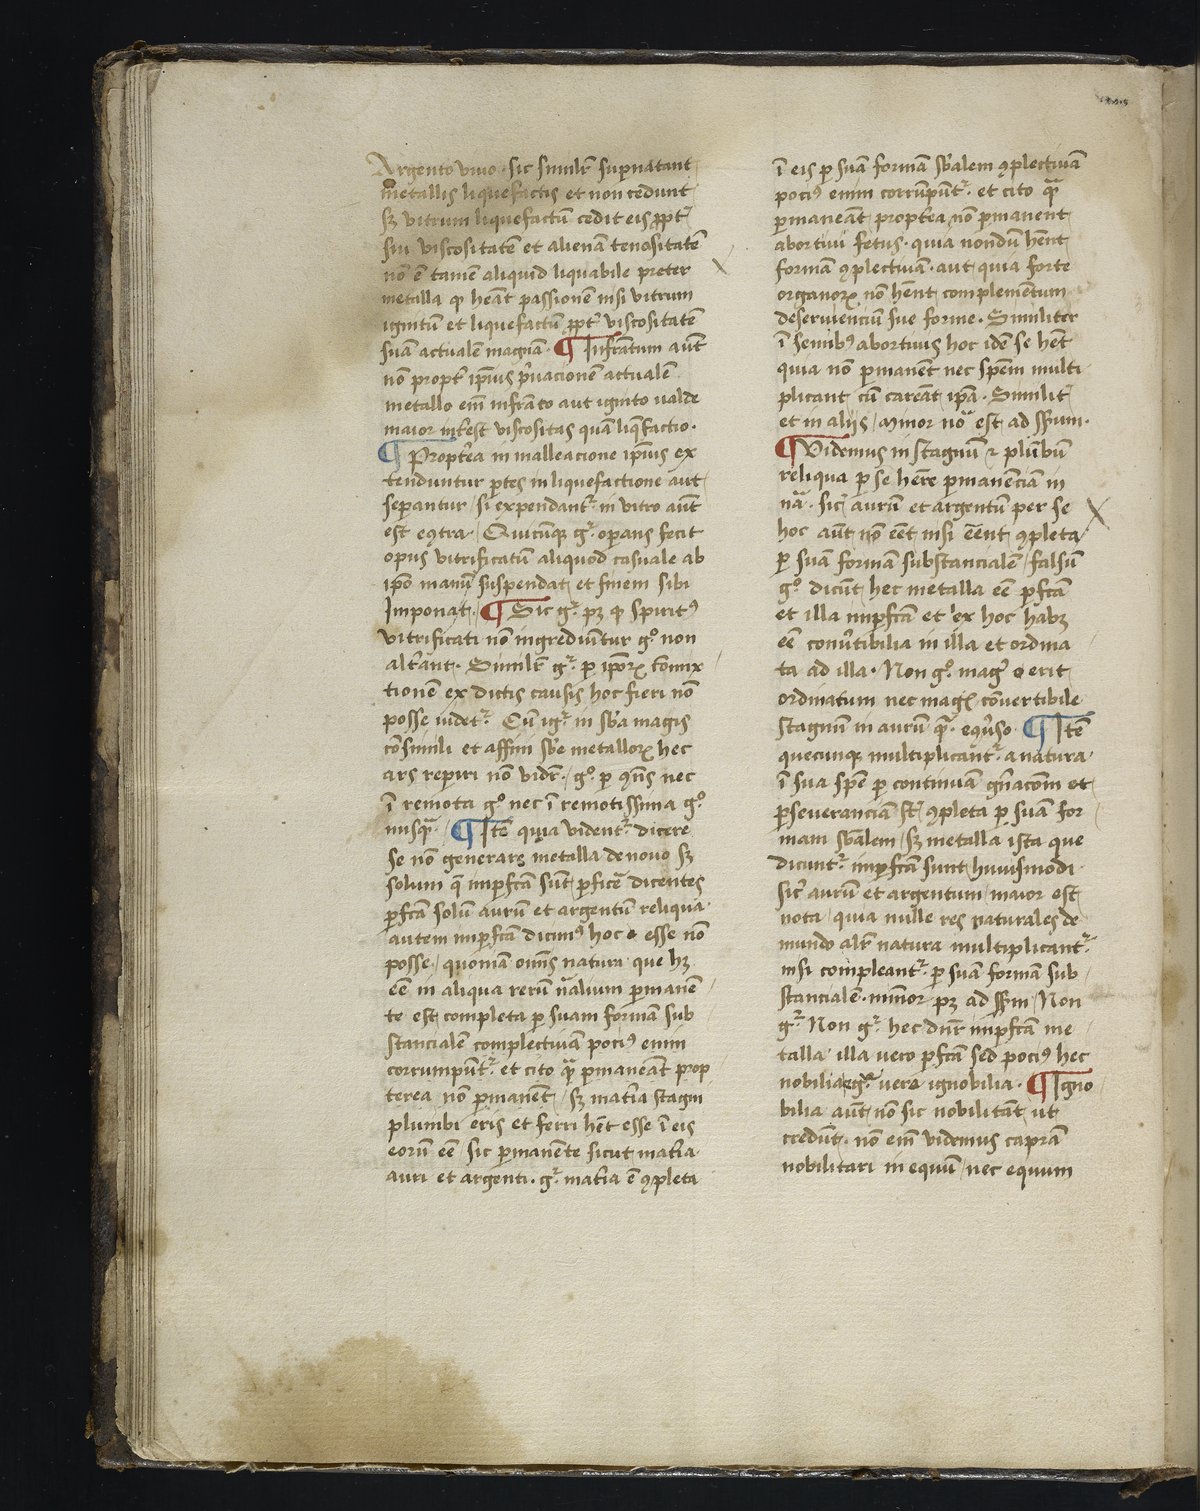 Argento viuo · sic similr̄ supnatant
metallis liquefactis et non cedunt
sꝫ vitrum liquefactū cedit eis ꝓpt᷑
sui viscositatē et alienā tenositatē
nō ē tamē aliquid liquabile preter
metalla qꝫ hēat passionē nisi vitrum
ignitū et liquefactū ꝓpt᷑ viscositatē
suā actualē magnā · ¶ Infrātum aūt
nō propt᷑ ip̄ius p̄uacionē actualē
metallo em̄ infrāto aut ignito valde
maior int᷑est viscositas quā liq̄factio ·
¶ Propt᷑ea in malleacione ip̄ius ex
tenduntur ꝑtes in liquefactione aut
seꝑantur / si expendant᷑ in vitro aūt
est eꝯtra · Quicūqꝫ g᷑ oꝑans fecit
opus vitrificatū aliquod casuale ab
ip̄o manū suspendat et finem sibi
Imponat · ¶ Sic g᷑ pꝫ ꝙ spiritꝰ
vitrificati nō ingrediūtur gͦ non
alt᷑ant · Similr̄ g᷑ ꝑ ip̄oꝝ cōmix
tionē ex dictis causis hoc fieri nō
posse videt᷑ · Cū ig᷑ in sb̄a magis
cōsimili et affini sb̄e metalloꝝ hec
ars reperiri nō vidr̄ · gͦ ꝑ ꝯn̄s nec
ī remota gͦ nec ī remotissima gͦ
nusqͣ · ¶ Itē quia vident᷑ dicere
se nō generare metalla denouo sꝫ
solum q̄ imꝑfcā sūt ꝑficē dicentes
ꝑfcā solū aurū et argentū reliqua
autem imꝑfcā dicimꝰ hoc esse nō
posse / quoniā om̄s natura que hꝫ
eē in aliqua rerū nāliū ꝑmanē
te est completa ꝑ suam formā sub
stancialē complectiuā pociꝰ enim
corrumpūt᷑ et cito qͣ ꝑmaneāt prop
terea nō ꝑmanēt / sꝫ mat᷑ia stagni
plumbi eris et ferri hēt esse ī eis
eorū eē / sic ꝑmanēte sicut mat᷑ia
auri et argenti · g᷑ mat᷑ia ē ꝯpleta
ī eis ꝑ suā formā sb̄alem ꝯplectiuā
pociꝰ enim corrūpūt᷑ · et cito qͣ
ꝑmaneāt propt᷑ea nō ꝑmanent
abortiui fetus · quia nondū hēnt
formā ꝯplectiuā · aut quia forte
organoꝝ nō hēnt complemētum
deseruienciū sue forme · Similiter
ī seminibꝰ abortiuis hoc idē se hēt
quia nō ꝑmanēt nec spēm multi
plicant cū careāt ip̄a · Similit᷑
et in alijs / Minor nō est ad ss̄um ·
¶ Videmus in stagnū ⁊ plūbū
reliqua ꝑ se hēre ꝑmanēciā in
nā · sic᷑ aurū et argentū per se
hoc aūt nō eēt nisi eēnt ꝯpleta
ꝑ suā formā substancialē / falsū
gͦ dicūt hec metalla eē ꝑfcā
et illa imꝑfcā et ex hoc habꝫ
eē conu᷑tibilia in illa et ordina
ta ad illa · Non gͦ mag᷑ erit
ordinatum nec mag᷑ conuertibile
stagnū in aurū qͣ equ᷑so · ¶ Itē
quecunqꝫ multiplicant᷑ a natura
ī sua sp̄e ꝑ continuā gn̄acōm et
ꝑseueranciā st̄ ꝯpleta ꝑ suā for
mam sb̄alem / sꝫ metalla ista que
dicunt᷑ imꝑfcā sunt huiusmodi
sic᷑ aurū et argentum / maior est
nota / quia nulle res naturales de
mundo alr̄ natura multiplicant᷑
nisi compleant᷑ ꝑ suā formā sub
stancialē · minor pꝫ ad ss̄m / Non
g᷑ Non g᷑ hec dn̄r imꝑfcā me
talla illa vero ꝑfcā sed pociꝰ hec
nobilia g᷑ vera ignobilia · ¶ Igno
bilia aūt nō sic nobilitāt ut
credūt · nō em̄ videmus caprā
nobilitari in equū / nec equum